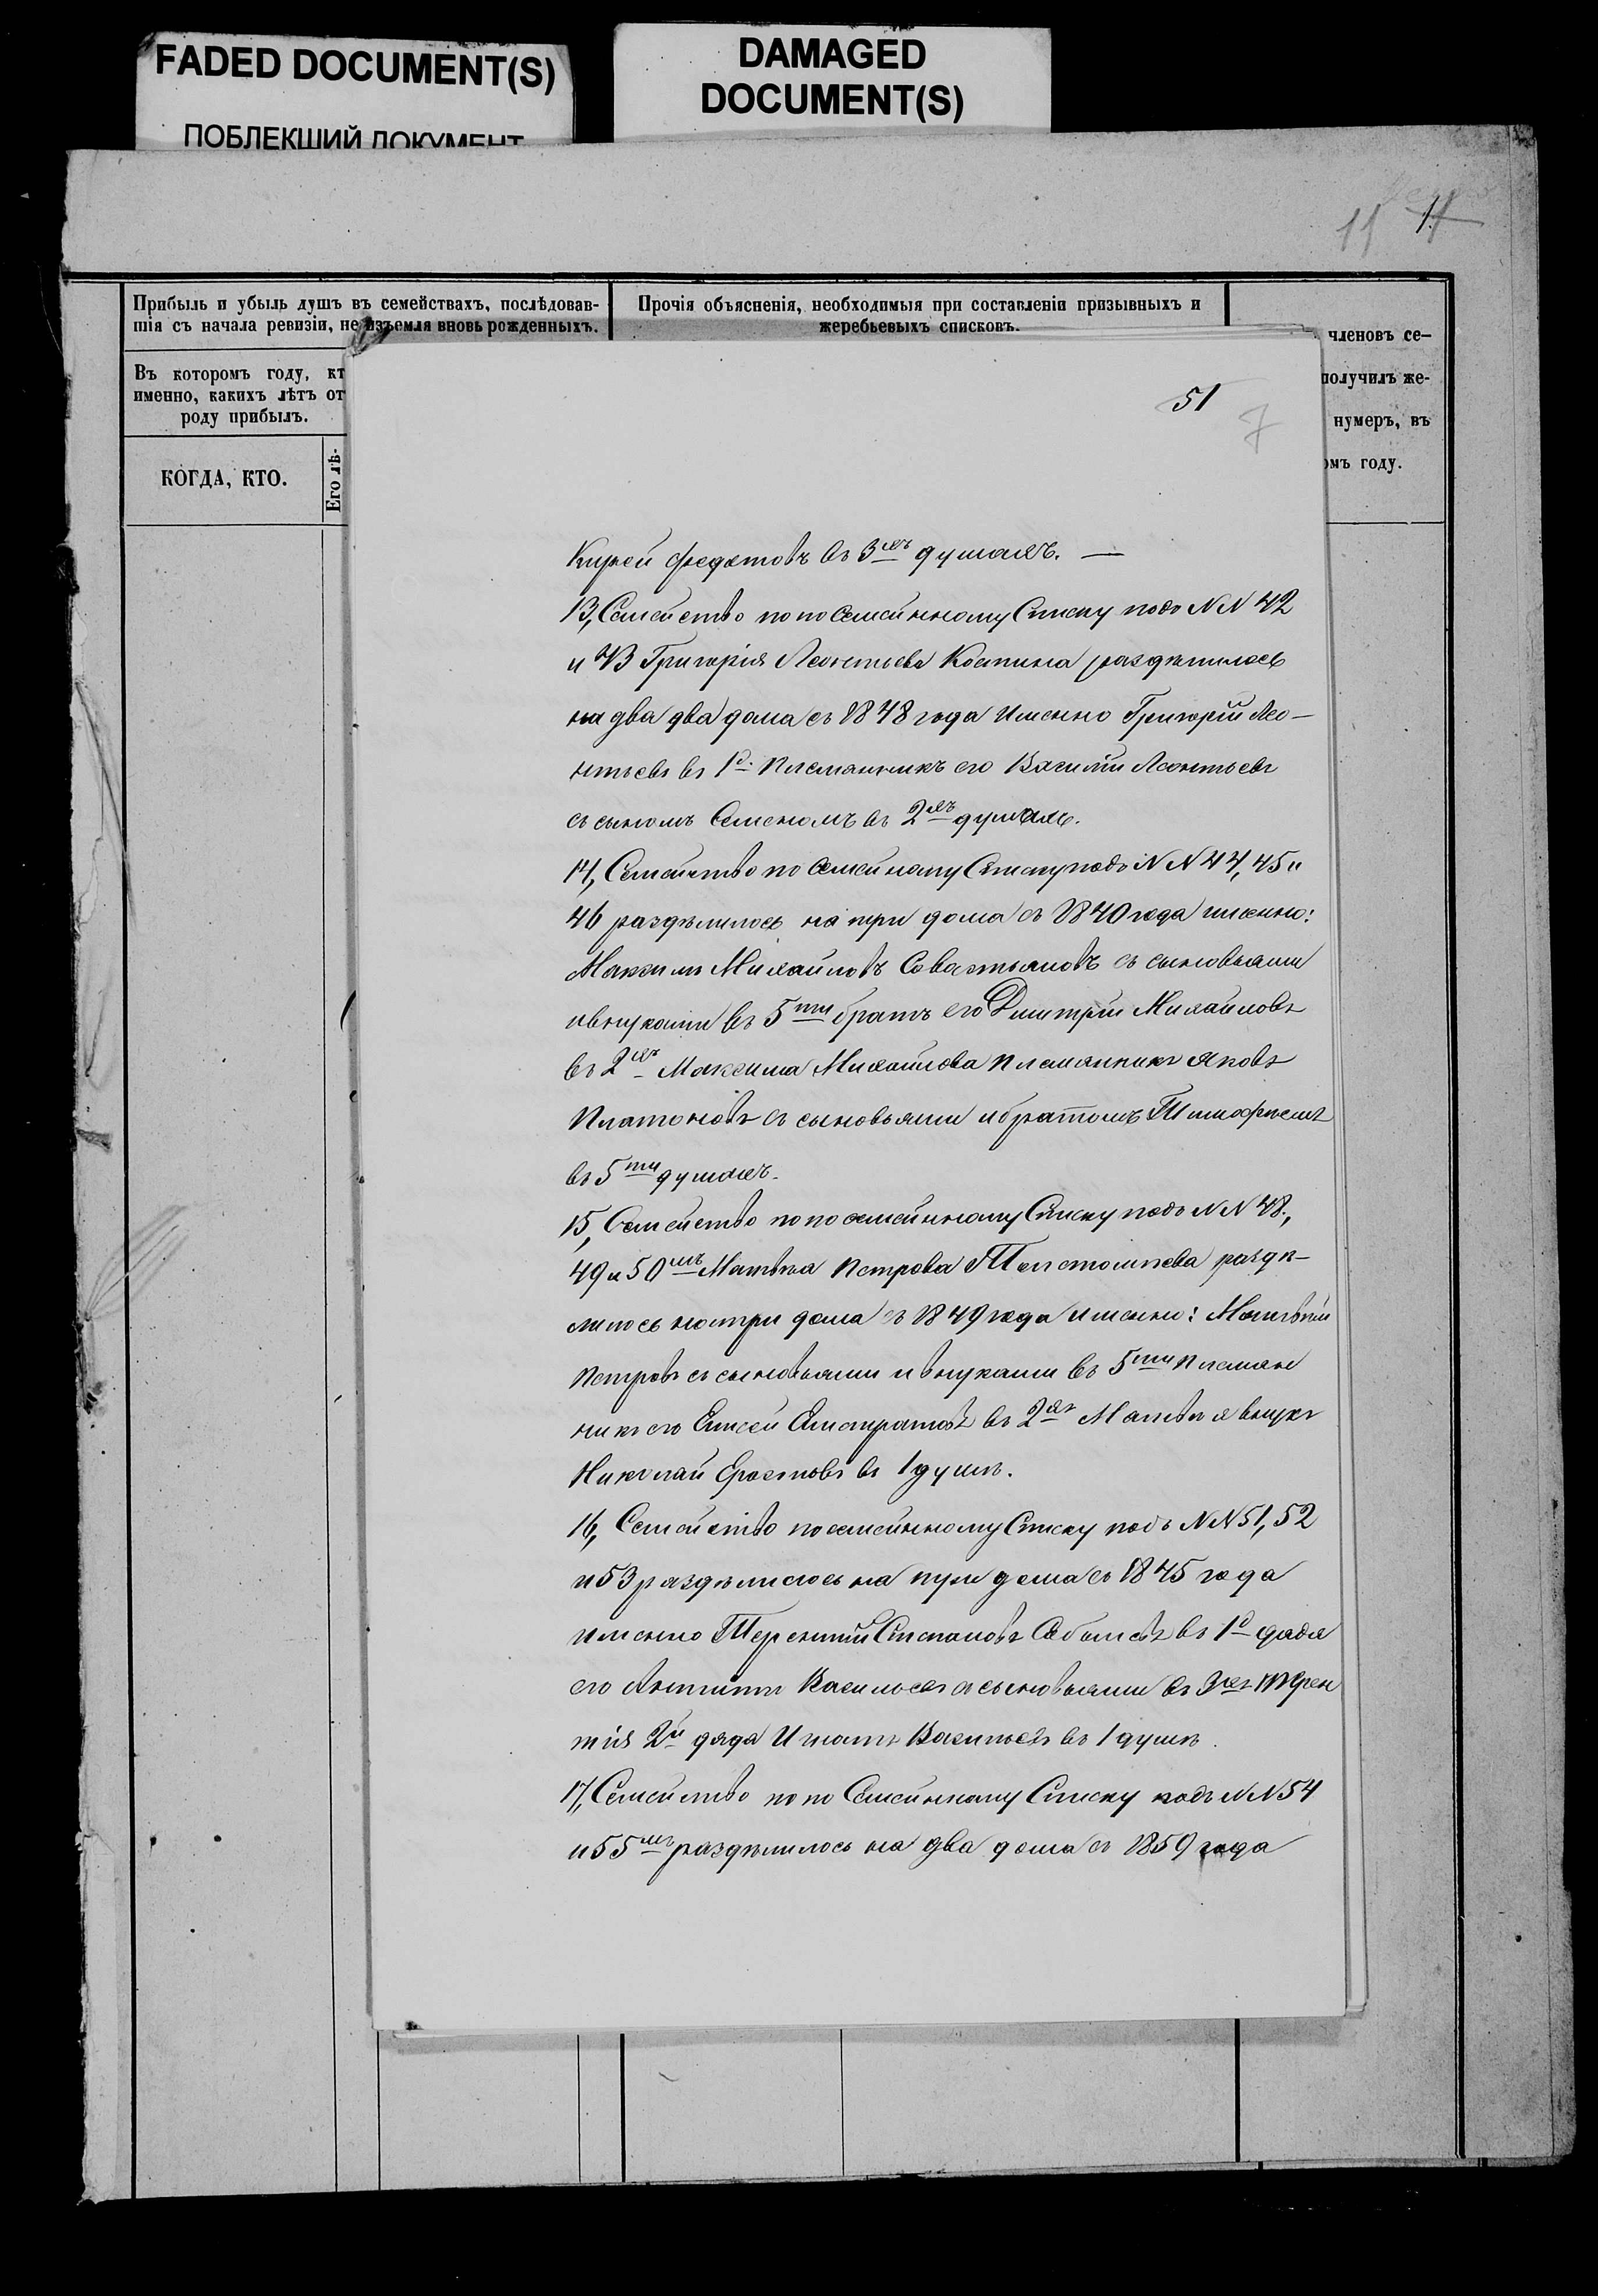 FADED DOCUMENT(S)
ПОБЛЕКШИЙ ДОКУМЕНТ
DAMAGED
DOCUMENT(S)
11 11
Прибыль и убыль душъ въ семействахъ, послѣдовав-
шія съ начала ревизіи, не изъемля вновь рожденныхъ.
Прочія объясненія, необходимыя при составленіи призывныхъ и
жеребьевыхъ списковъ.
членовъ се-
получилъ же-
нумеръ, въ
омъ году.
Въ которомъ году, кт
именно, какихъ лѣтъ от
роду прибылъ.
КОГДА, КТО.
Его лѣ-
51
7
Кирей Федотовъ въ 3хъ душахъ. —
13, Семейство по посемейнному Списку подъ NN 42
и 43 Григорія Леонтьева Костина раздѣлилось
на два два дома съ 1848 года именно Григорій Лео-
нтьевъ въ 1й. Племянникъ его Василій Леонтьевъ
съ сыномъ Семеномъ въ 2хъ душахъ.
14, Семейство по семейному Списку подъ NN 44, 45 и
46 раздѣлилось на три дома съ 1840 года имсенно:
Максимъ Михайловъ Савастьяновъ съ сыновьями
и внуками въ 5ти братъ его Дмитрій Михайловъ
въ 2хъ Максима Михайлова племянникъ Яковъ
Платоновъ съ сыновьями и братомъ Тимофѣемъ
въ 5ти душахъ.
15, Семейство по посемейнному Списку подъ NN 48.,
49 и 50мъ Матвѣя Петрова раздѣ-
лилось на три дома съ 1849 года именно: Матвѣй
Петровъ съ сыновьями и внуками въ 5ти племян
никъ его Елисей Елистратовъ въ 2хъ Матвѣя внукъ
Николай Ерастовъ въ 1 душѣ.
16, Семейство по семейнному Списку подъ NN 51, 52
и 53 раздѣлилось на три дома съ 1845 года
именно Терентій Степановъ Соболевъ въ 1й дядя
его Антипъ Васильевъ съ сыновьями въ 3хъ Терен
тія 2й дядя Игнатъ Васильевъ въ 1 душѣ.
17, Семейство по по Семейнному Списку подъ NN 54
и 55мъ раздѣлилось на два дома съ 1859 года